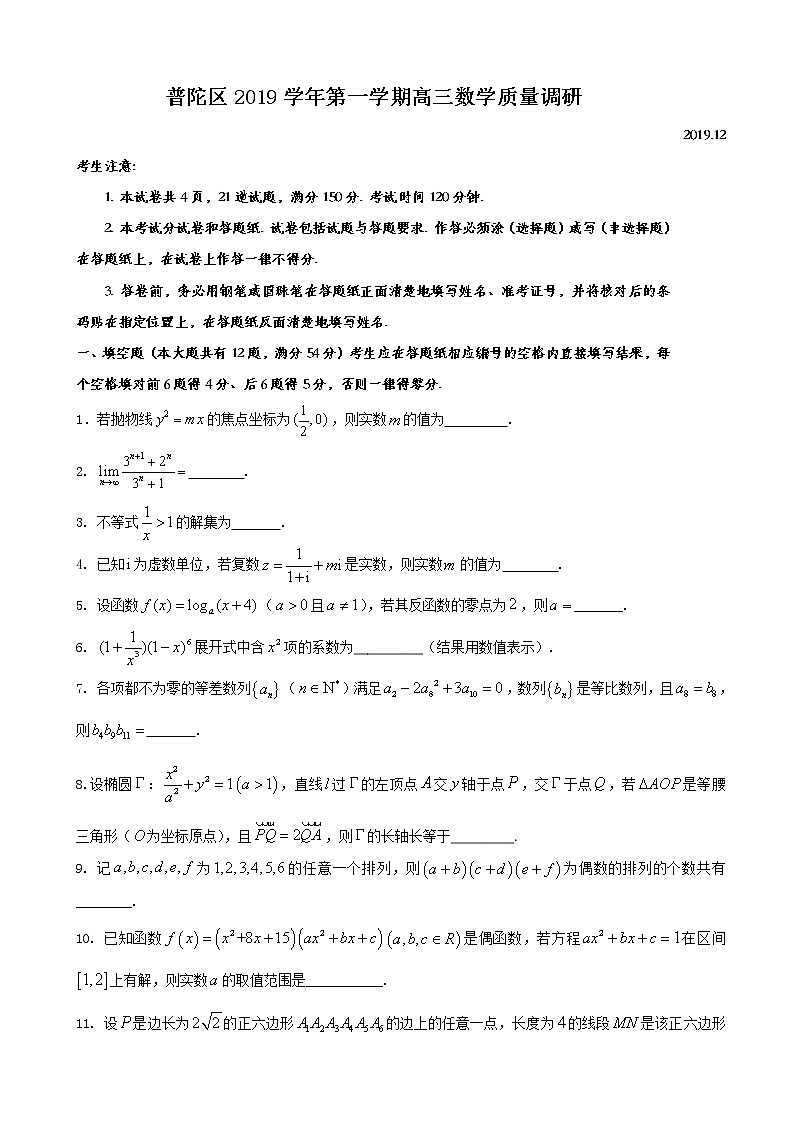 普陀区 2019 学年第一学期高三数学质量调研
2019.12
考生注意:
1. 本试卷共 4 页，21 道试题，满分 150 分. 考试时间 120 分钟.
2. 本考试分试卷和答题纸. 试卷包括试题与答题要求. 作答必须涂（选择题）或写（非选择题）
在答题纸上，在试卷上作答一律不得分.
3. 答卷前，务必用钢笔或圆珠笔在答题纸正面清楚地填写姓名、准考证号，并将核对后的条
码贴在指定位置上，在答题纸反面清楚地填写姓名.
一、填空题（本大题共有 12 题，满分 54 分）考生应在答题纸相应编号的空格内直接填写结果，每
个空格填对前 6 题得 4 分、后 6 题得 5 分，否则一律得零分.
1. 若抛物线 y² = m x 的焦点坐标为 (1/2, 0)，则实数 m 的值为_________.
2. lim_{n→∞} (3^{n+1} + 2^n)/(3^n + 1) = ________.
3. 不等式 1/x > 1 的解集为_______.
4. 已知 i 为虚数单位，若复数 z = 1/(1+i) + mi 是实数，则实数 m 的值为________.
5. 设函数 f(x) = log_a(x+4)（a > 0 且 a ≠ 1），若其反函数的零点为 2，则 a = _______.
6. (1 + 1/x³)(1 − x)⁶ 展开式中含 x² 项的系数为__________（结果用数值表示）.
7. 各项都不为零的等差数列{a_n}（n ∈ N*）满足 a₂ − 2a₈² + 3a₁₀ = 0，数列{b_n}是等比数列，且 a₈ = b₈，
则 b₄b₉b₁₁ = _______.
8.设椭圆 Γ: x²/a² + y² = 1 (a > 1)，直线 l 过 Γ 的左顶点 A 交 y 轴于点 P，交 Γ 于点 Q，若 ΔAOP 是等腰
三角形（O 为坐标原点），且 PQ = 2QA，则 Γ 的长轴长等于_________.
9. 记 a,b,c,d,e,f 为 1,2,3,4,5,6 的任意一个排列，则 (a+b)(c+d)(e+f) 为偶数的排列的个数共有
________.
10. 已知函数 f(x) = (x²+8x+15)(ax²+bx+c)(a,b,c∈R) 是偶函数，若方程 ax²+bx+c=1 在区间
[1,2] 上有解，则实数 a 的取值范围是___________.
11. 设 P 是边长为 2√2 的正六边形 A₁A₂A₃A₄A₅A₆ 的边上的任意一点，长度为 4 的线段 MN 是该正六边形